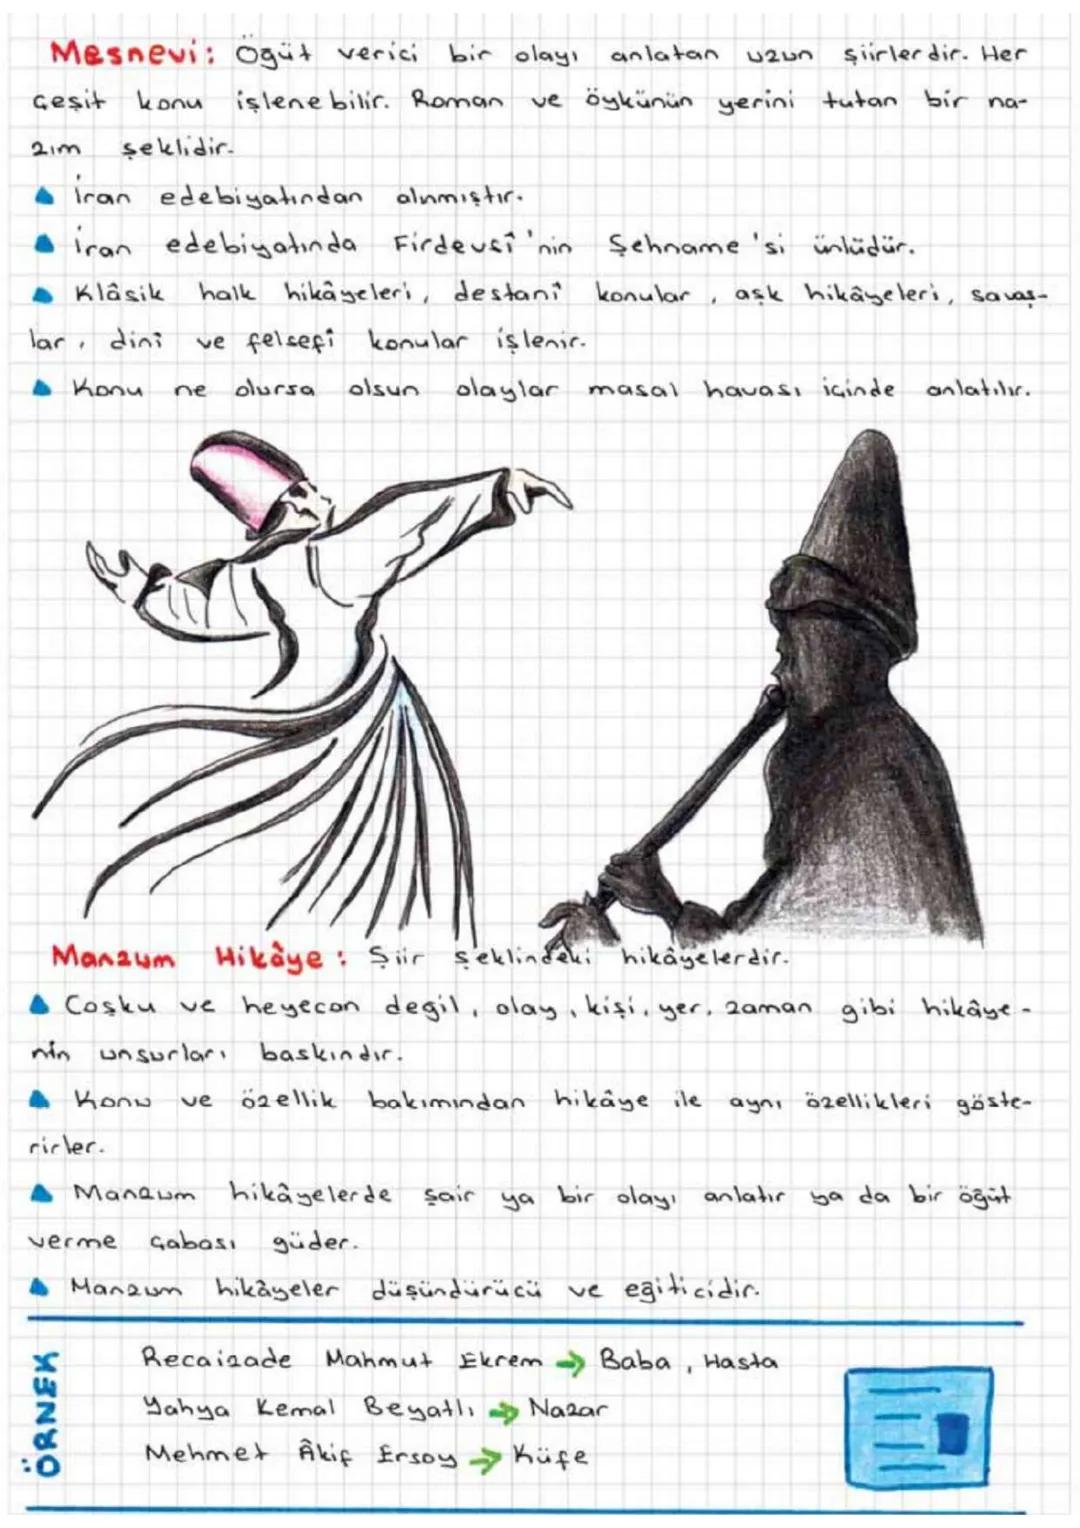 Mesnevi: Öğüt verici bir olayı anlatan uzun şiirlerdir. Her
çeşit konu işlenebilir. Roman ve öykünün yerini tutan bir na-
zım şeklidir.
İran edebiyatından alınmıştır.
İran edebiyatında Firdevsî'nin Şehname'si ünlüdür.
Klâsik halk hikâyeleri, destanî konular, aşk hikâyeleri, savaş-
lar, dinî ve felsefî konular işlenir.
Konu ne olursa olsun olaylar masal havası içinde anlatılır.
Manzum Hikâye: Şiir şeklindeki hikâyelerdir.
Coşku ve heyecan değil, olay, kişi, yer, zaman gibi hikâye-
nin unsurları baskındır.
Konu ve özellik bakımından hikâye ile aynı özellikleri göste-
rirler.
Manzum hikâyelerde şair ya bir olayı anlatır ya da bir öğüt
verme çabası güder.
Manzum hikâyeler düşündürücü ve eğiticidir.
ÖRNEK
Recaizade Mahmut Ekrem → Baba, Hasta
Yahya Kemal Beyatlı → Nazar
Mehmet Âkif Ersoy → Küfe